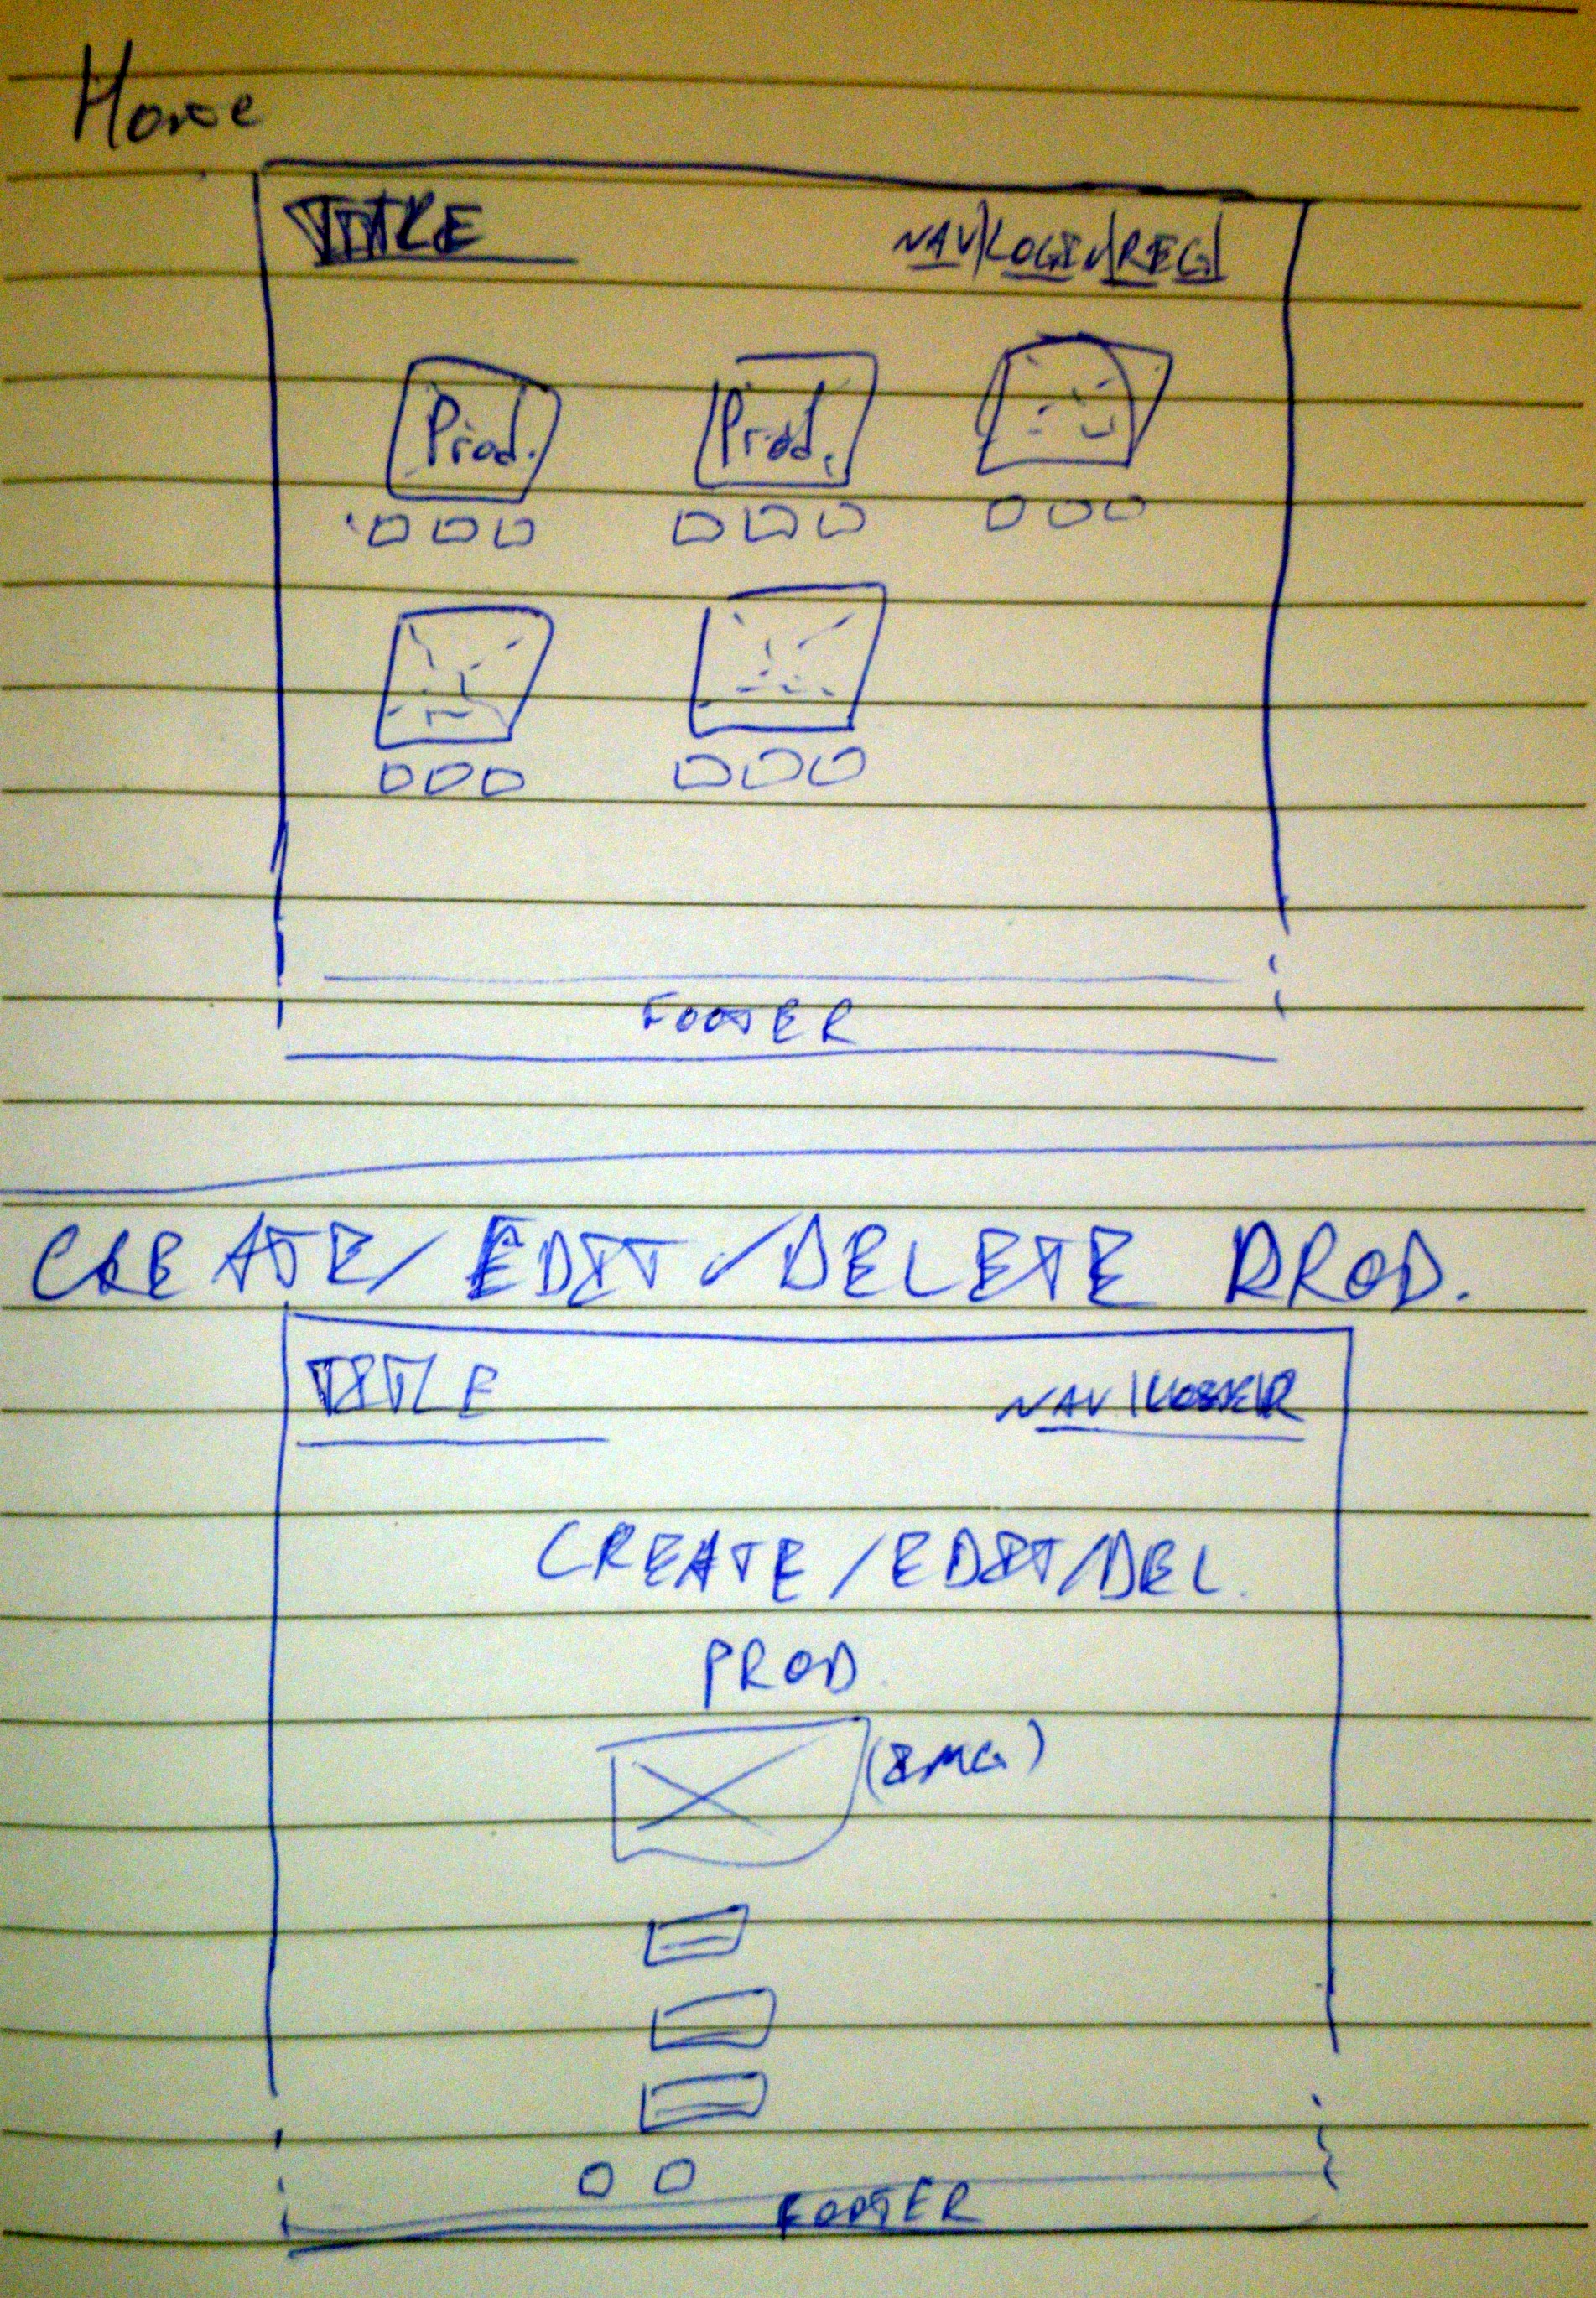 Home
TITLE NAV|LOGIN|REG|
Prod. Prod.
FOOTER
CREATE/EDIT/DELETE PROD.
TITLE NAV|
CREATE/EDIT/DEL.
PROD
(IMG)
FOOTER